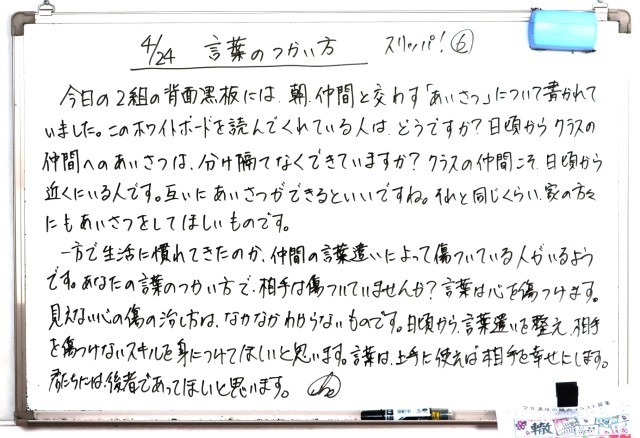 4/24 言葉のつかい方 スリッパ！⑥
今日の2組の背面黒板には、朝、仲間と交わす「あいさつ」について書かれて
いました。このホワイトボードを読んでくれている人は、どうですか？日頃からクラスの
仲間へのあいさつは、分け隔てなくできていますか？クラスの仲間こそ、日頃から
近くにいる人です。互いにあいさつができるといいですね。それと同じくらい、家の方々
にもあいさつをしてほしいものです。
一方で生活に慣れてきたのか、仲間の言葉遣いによって傷ついている人がいるよう
です。あなたの言葉のつかい方で、相手は傷ついていませんか？言葉は心を傷つけます。
見えない心の傷の治し方は、なかなかわからないものです。日頃から、言葉遣いを整え、相手
を傷つけないスキルを身につけてほしいと思います。言葉は、上手に使えば相手を幸せにします。
君たちには後者であってほしいと思います。